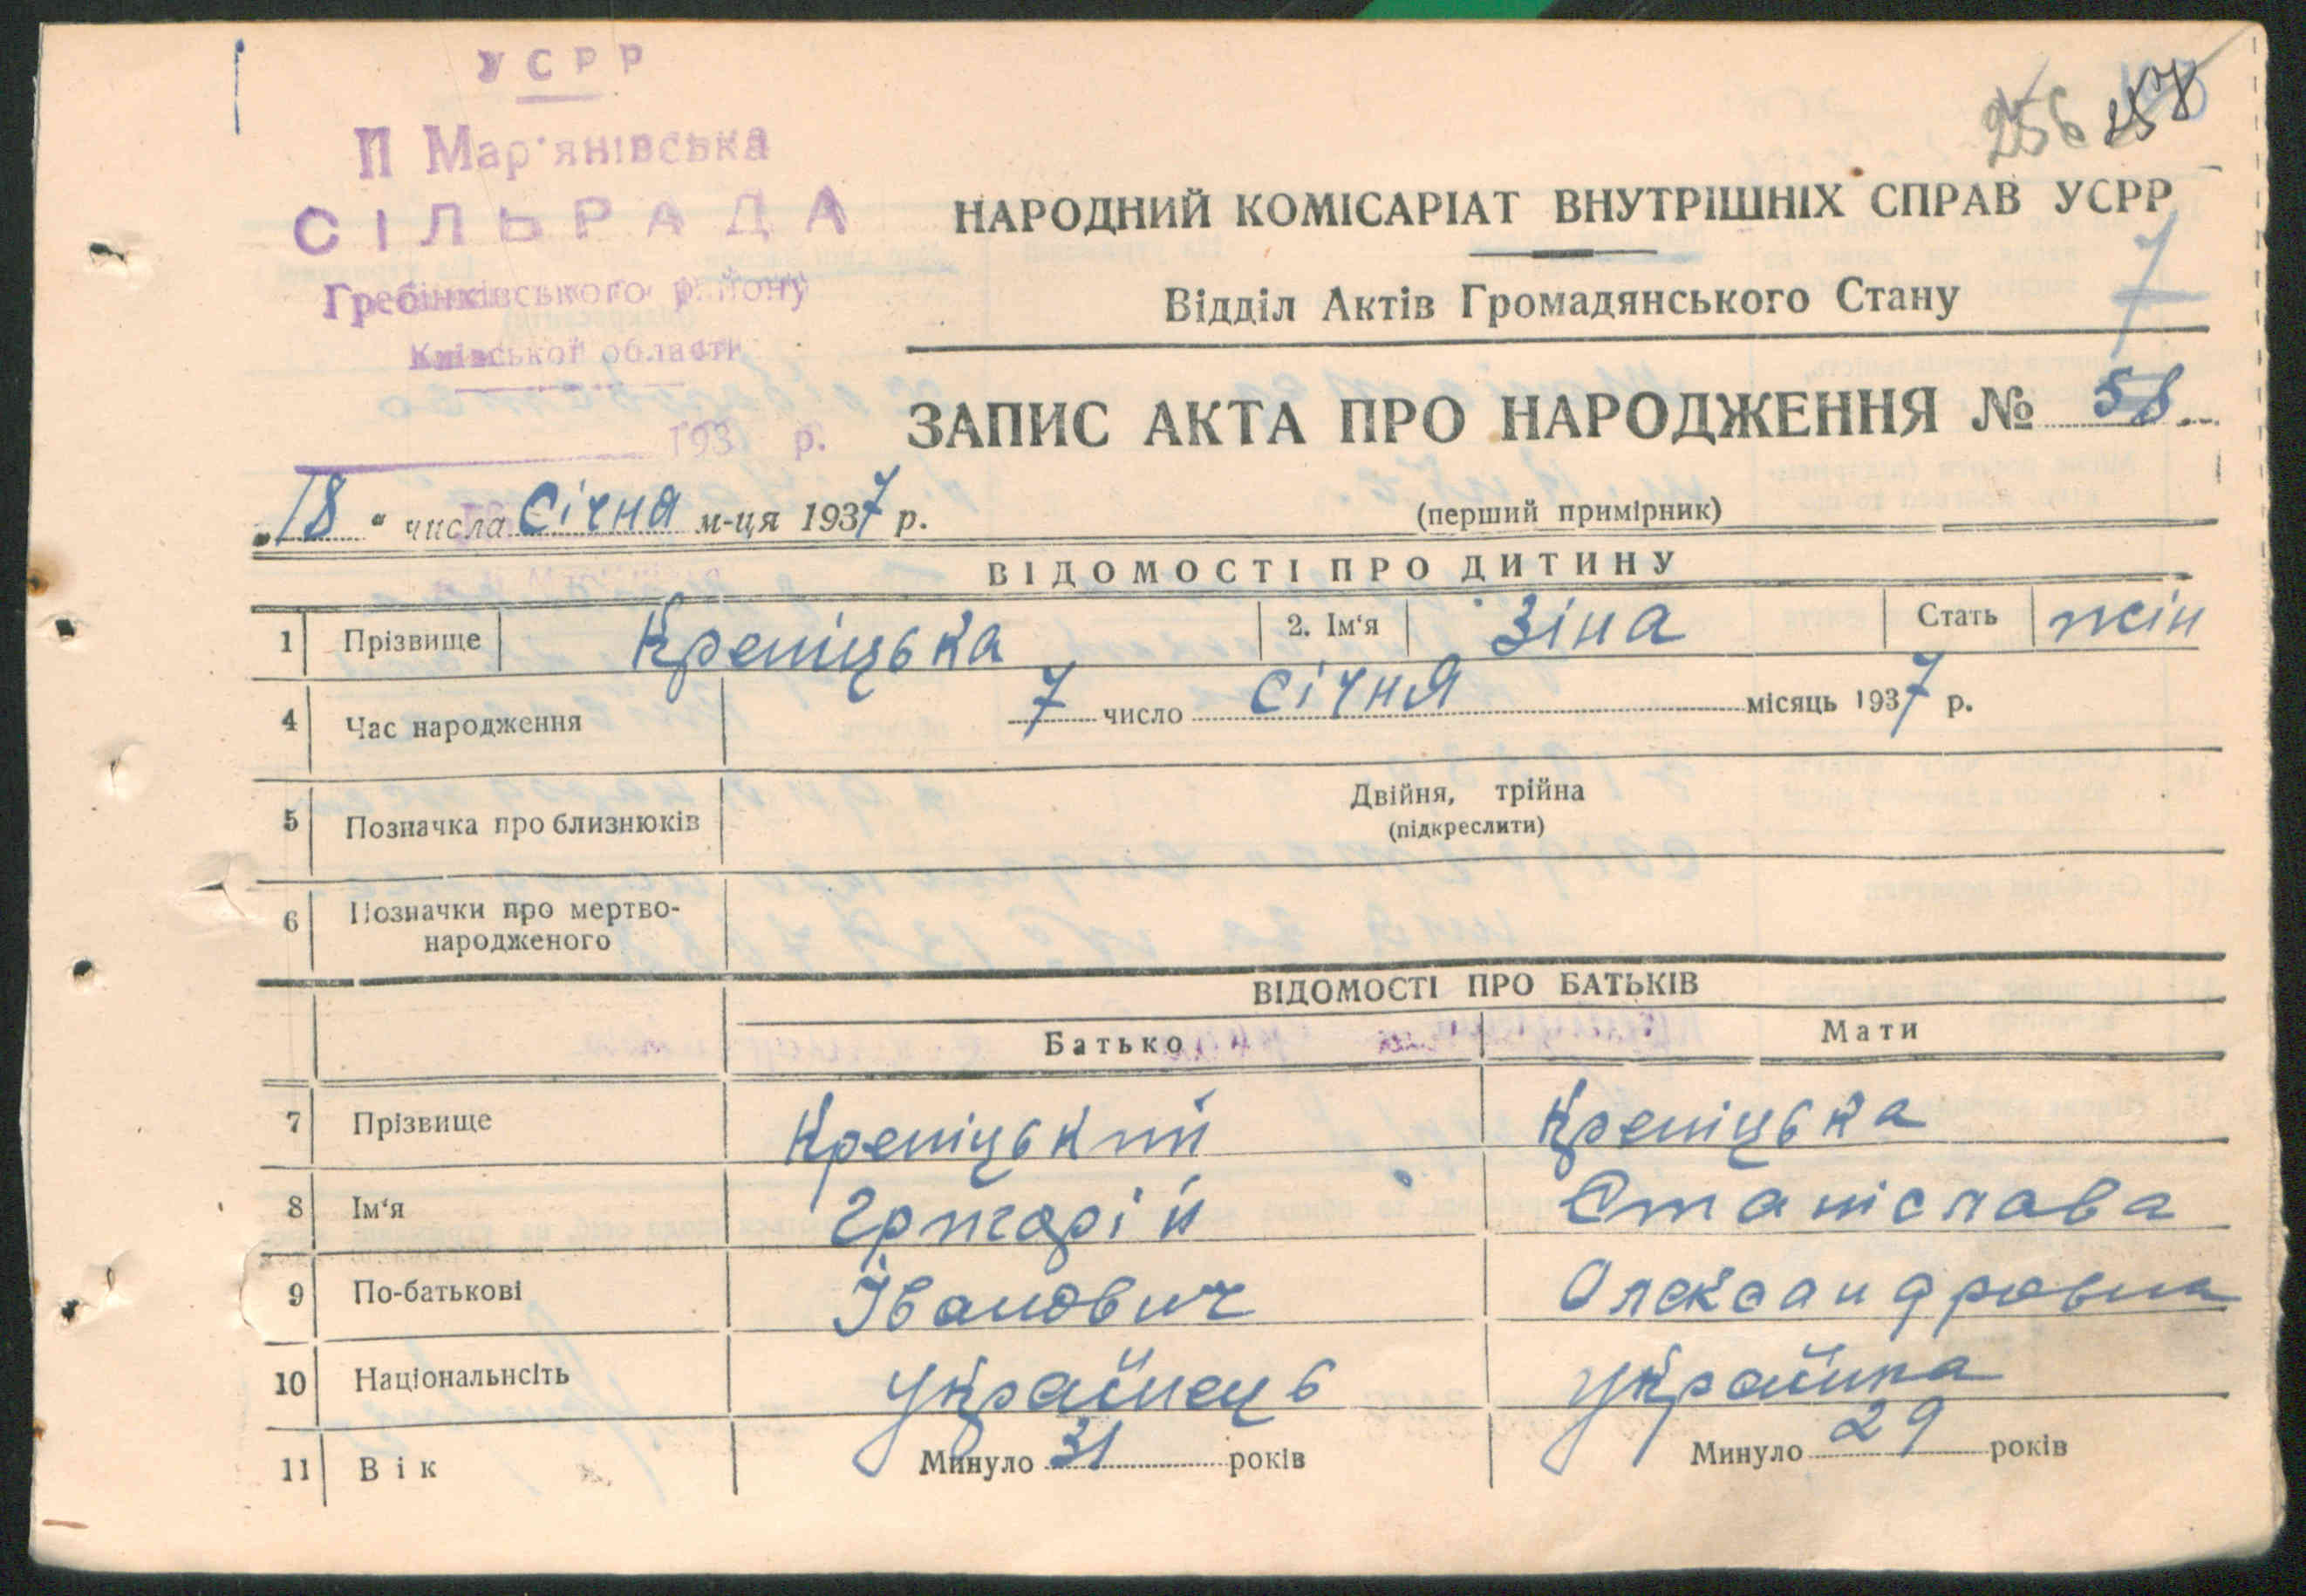 УСРР
ІІ Мар'янівська
СІЛЬРАДА
Гребінківського району
Київської области
193 р.
256 258
НАРОДНИЙ КОМІСАРІАТ ВНУТРІШНІХ СПРАВ УСРР
Відділ Актів Громадянського Стану
7
ЗАПИС АКТА ПРО НАРОДЖЕННЯ № 58
„18" числа Січня м-ця 1937 р.
(перший примірник)
ВІДОМОСТІ ПРО ДИТИНУ
1 Прізвище Крепіцька 2. Ім'я Зіна Стать жін
4 Час народження 7 число Січня місяць 1937 р.
5 Позначка про близнюків Двійня, трійня
(підкреслити)
6 Позначки про мертво-
народженого
ВІДОМОСТІ ПРО БАТЬКІВ
Батько Мати
7 Прізвище Крепіцький Крепіцька
8 Ім'я Григорій Станіслава
9 По-батькові Іванович Олександровна
10 Національнсіть Українець Українка
11 Вік Минуло 31 років Минуло 29 років